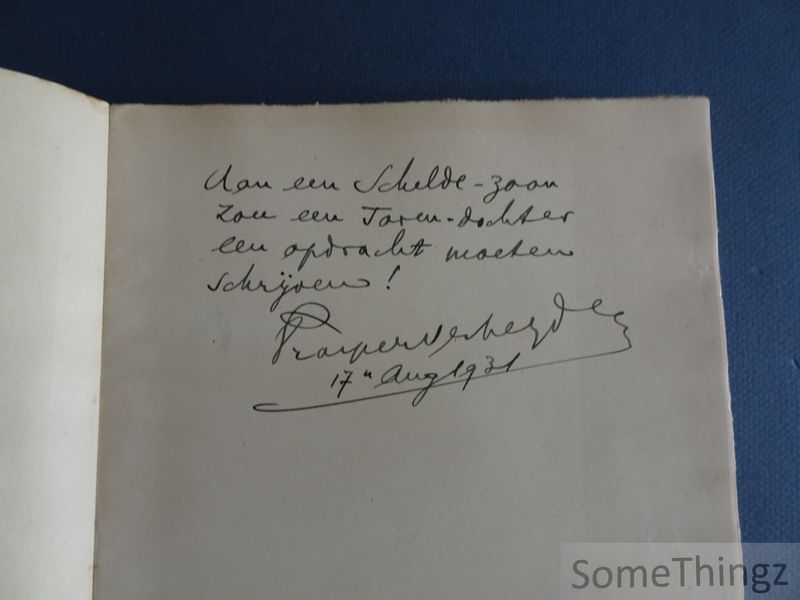 Aan een Schelde-zoon
zou een Toren-dochter
een opdracht moeten
schrijven!
Prosper Verheyden
17n Aug 1931
SomeThingz